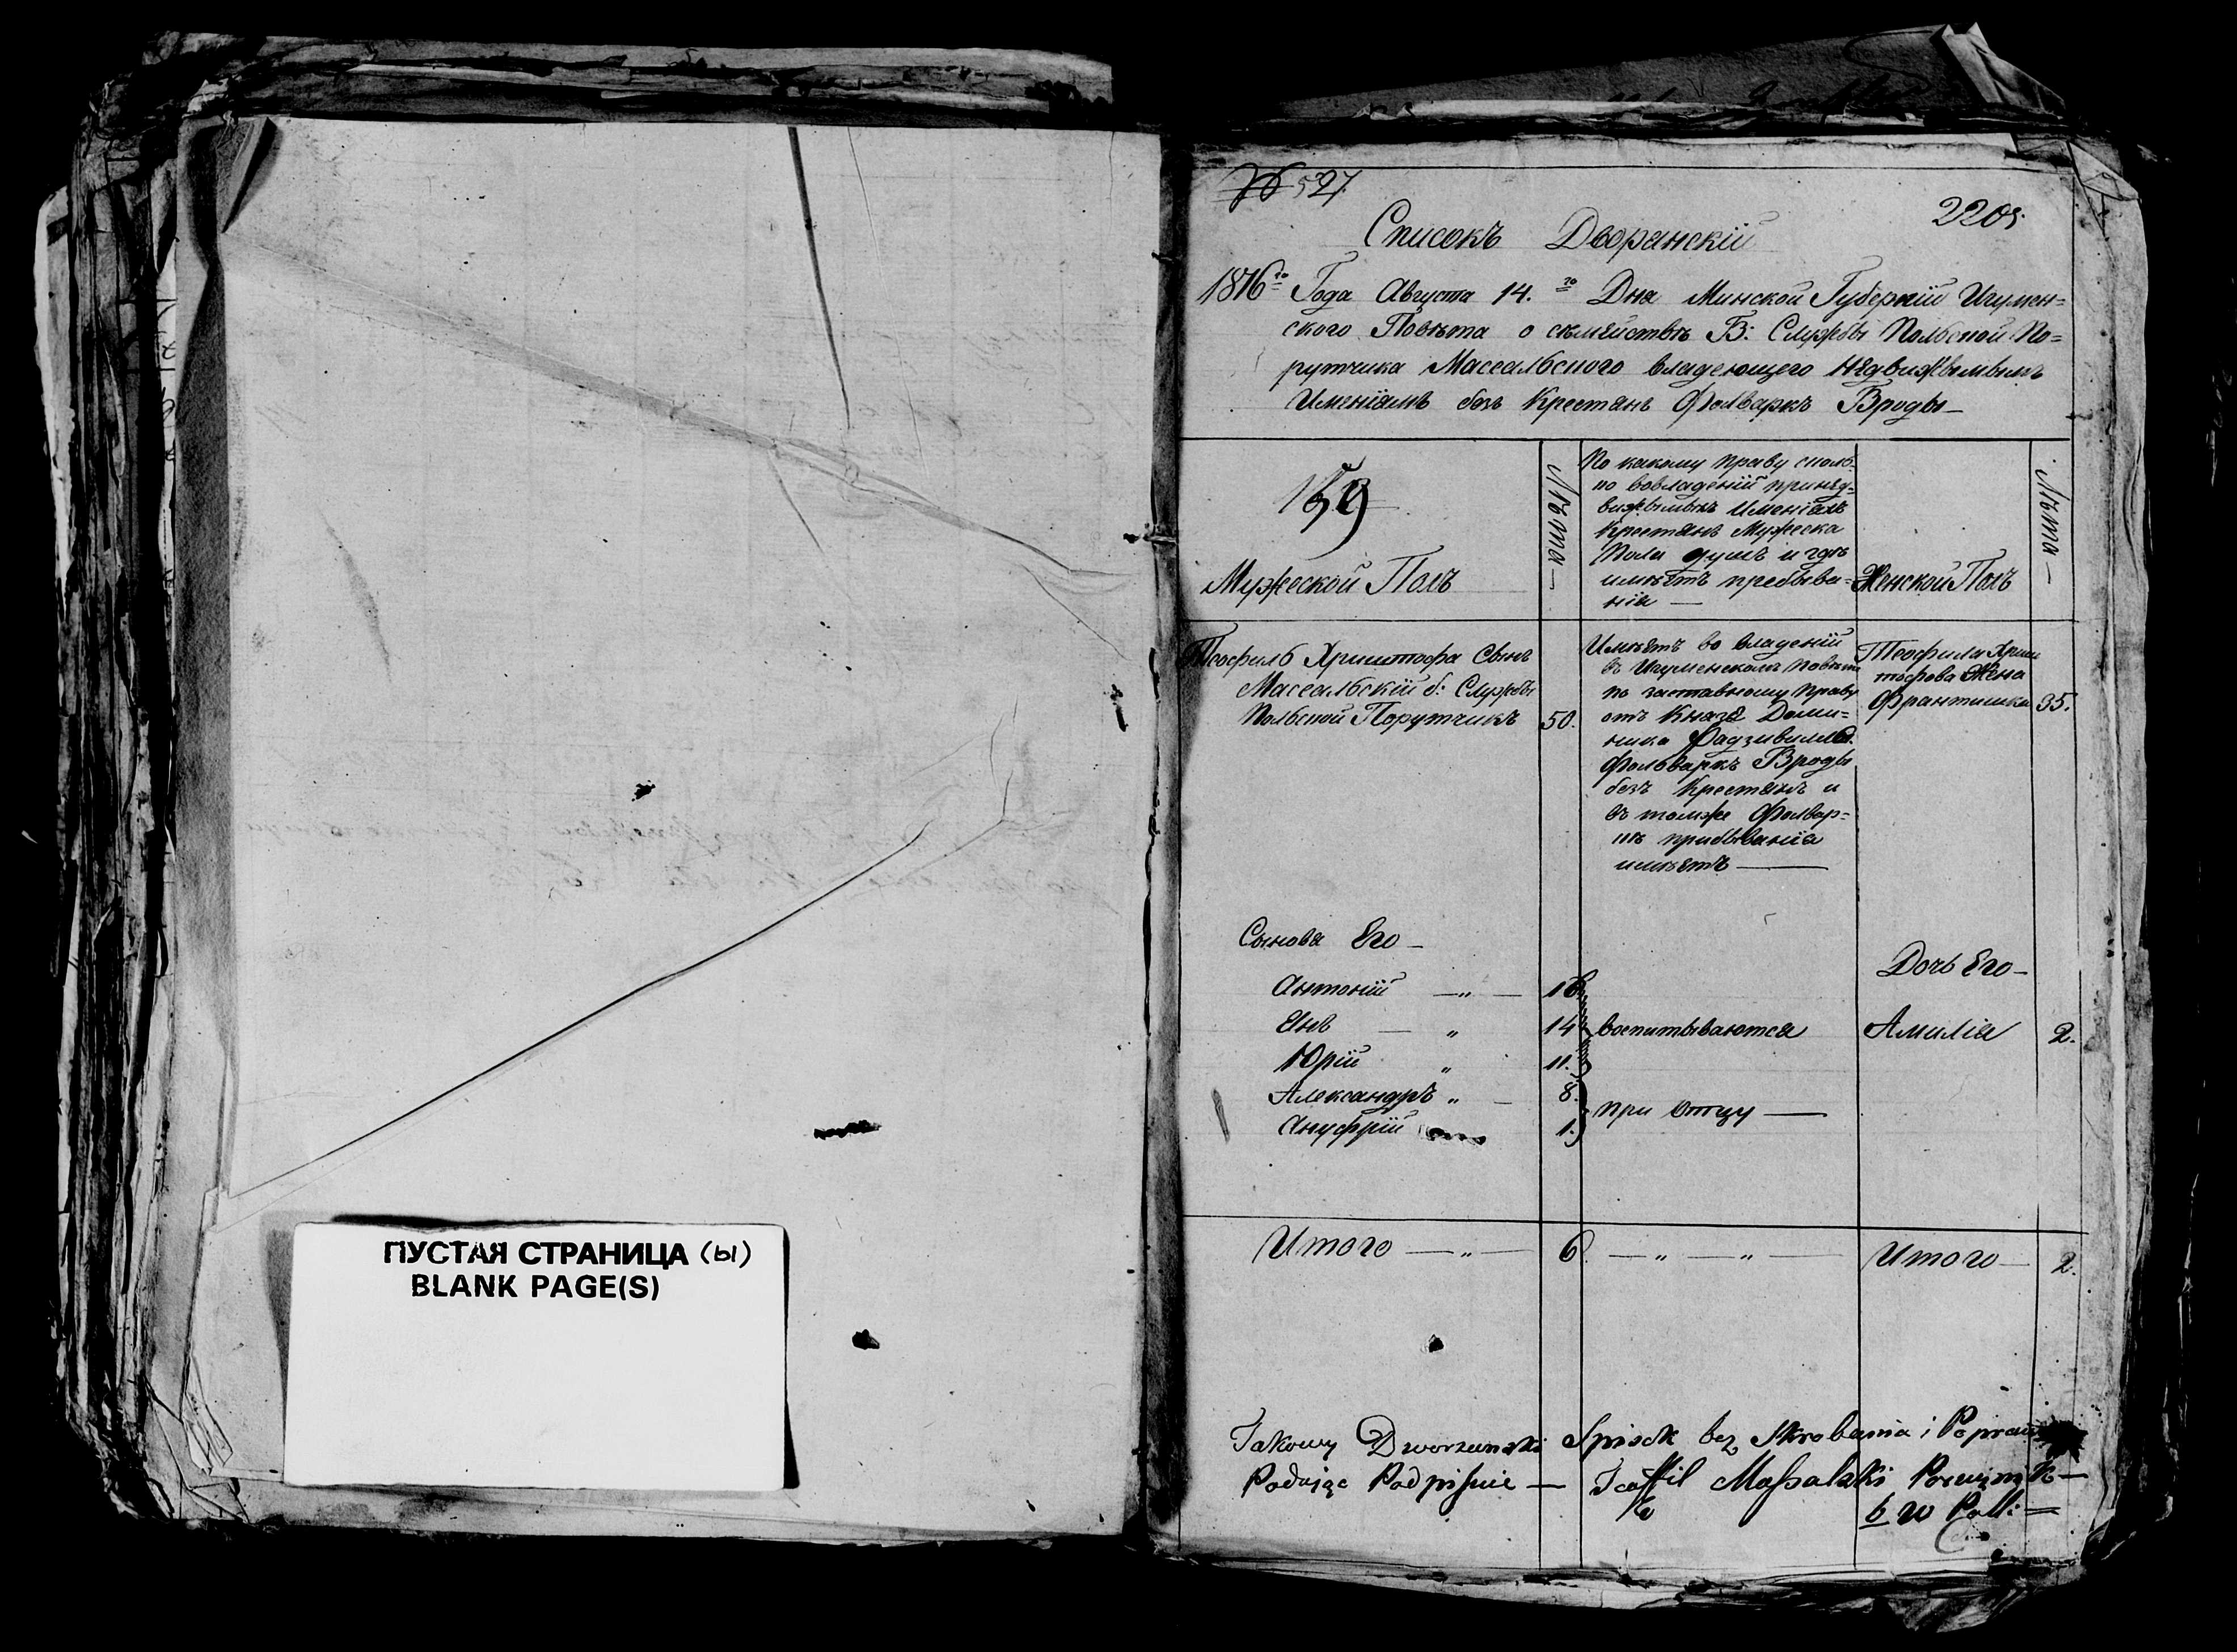 ПУСТАЯ СТРАНИЦА (ы)
BLANK PAGE(S)
№ 527.
2205.
Списокъ Дворанскій
1816го Года Августа 14.го Дна Минской Губерніи Игумен=
ского Повѣта о сѣмействѣ Б: Службы Польской По=
рутчика Массальского владеющего Недвижвымымъ
Именіамъ безъ Крестанъ Фолваркъ Броды —
159
Мужеской Полъ
Лѣта —
По какому праву сколь-
ко вовладеніи принед-
вижвымымъ Именіамъ
Крестанъ Мужеска
Пола душъ и гдѣ
имѣетъ пребыва=
ніа —
Женской Полъ
Лѣта —
Теофиль Христофа Сынъ
Массальскій б: Службы
Польской Порутчикъ 50.
Имѣетъ во владеніи
въ Игуменскомъ Повѣте
по заставному праву
отъ Князя Доми=
ника Радзивилла
Фольваркъ Броды
безъ Крестанъ и
въ томже Фолвар=
кѣ прибываніа
имѣетъ —
Теофила Хрис
тофова Жена
Франтишка 35.
Сынова Его —
Дочь Его —
Антоній — „ — 16
Янъ — „ 14 воспитываются
Амиліа 2.
Юрій „ 11.
Александръ „ — 8.
при Отцу —
Ануфрій 1.
Итого — „ — 6. — „ — „ — Итого — 2.
Takowy Dworzanski Spisok bez Skrobania i Popraw
Podając Podpisuie — Teoffil Massalski Porucznik —
b w Polli =